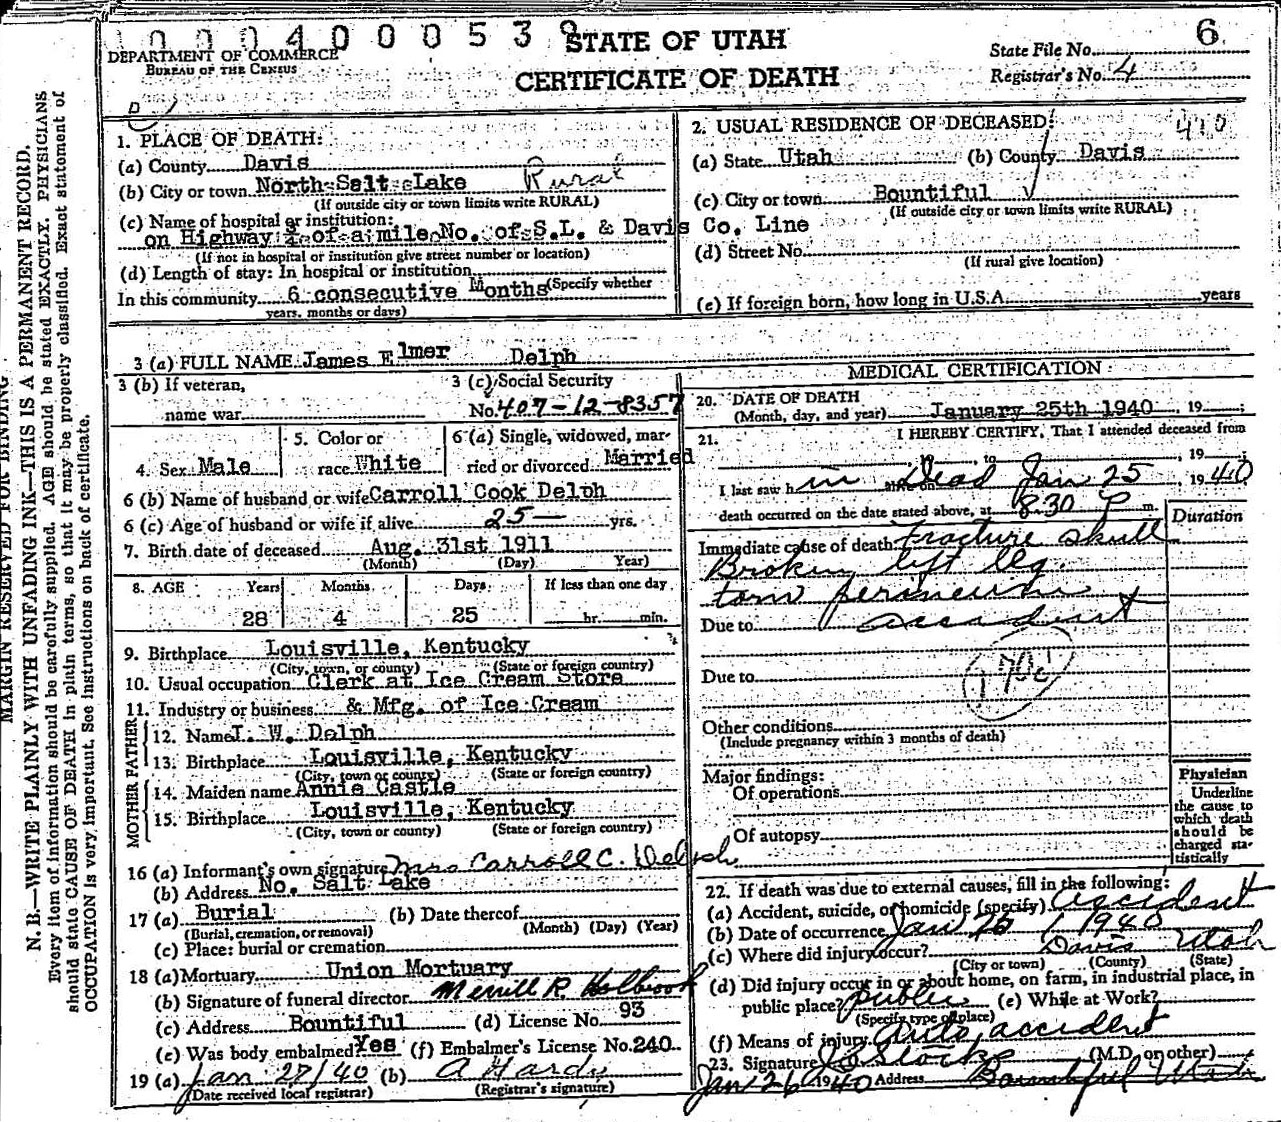 1 0 0 0 4 0 0 0 5 3 9
STATE OF UTAH
6
DEPARTMENT OF COMMERCE
BUREAU OF THE CENSUS
CERTIFICATE OF DEATH
State File No.
Registrar's No. 4
MARGIN RESERVED FOR BINDING
N. B.—WRITE PLAINLY WITH UNFADING INK—THIS IS A PERMANENT RECORD.
Every item of information should be carefully supplied. AGE should be stated EXACTLY. PHYSICIANS
should state CAUSE OF DEATH in plain terms, so that it may be properly classified. Exact statement of
OCCUPATION is very important. See instructions on back of certificate.
1. PLACE OF DEATH:
(a) County Davis
(b) City or town North Salt Lake Rural
(If outside city or town limits write RURAL)
(c) Name of hospital or institution:
on Highway of a mile No. of S.L. & Davis Co. Line
(If not in hospital or institution give street number or location)
(d) Length of stay: In hospital or institution
(Specify whether
In this community 6 consecutive Months
years, months or days)
2. USUAL RESIDENCE OF DECEASED:
(a) State Utah (b) County Davis
(c) City or town Bountiful
(If outside city or town limits write RURAL)
(d) Street No.
(If rural give location)
(e) If foreign born, how long in U.S.A. years
3 (a) FULL NAME James Elmer Delph
3 (b) If veteran,
name war
3 (c) Social Security
No. 407-12-8357
4. Sex Male
5. Color or
race White
6 (a) Single, widowed, mar-
ried or divorced Married
6 (b) Name of husband or wife Carroll Cook Delph
6 (c) Age of husband or wife if alive 25— yrs.
7. Birth date of deceased Aug. 31st 1911
(Month) (Day) Year)
8. AGE Years Months Days If less than one day
28 4 25 hr. min.
9. Birthplace Louisville, Kentucky
(City, town, or county) (State or foreign country)
10. Usual occupation Clerk at Ice Cream Store
11. Industry or business & Mfg. of Ice Cream
FATHER
12. Name J. W. Delph
13. Birthplace Louisville, Kentucky
(City, town or county) (State or foreign country)
MOTHER
14. Maiden name Annie Castle
15. Birthplace Louisville, Kentucky
(City, town or county) (State or foreign country)
16 (a) Informant's own signature Mrs Carroll C. Delph
(b) Address No. Salt Lake
17 (a) Burial (b) Date thereof
(Burial, cremation, or removal) (Month) (Day) (Year)
(c) Place: burial or cremation
18 (a) Mortuary Union Mortuary
(b) Signature of funeral director Merrill R. Holbrook
(c) Address Bountiful (d) License No. 93
(e) Was body embalmed? Yes (f) Embalmer's License No. 240
19 (a) Jan 27/40 (b) A Hardy
(Date received local registrar) (Registrar's signature)
MEDICAL CERTIFICATION
20. DATE OF DEATH
(Month, day, and year) January 25th 1940, 19 ;
21. I HEREBY CERTIFY, That I attended deceased from
, 19 , to , 19
I last saw him alive on Dead Jan 25, 1940
death occurred on the date stated above, at 8:30 P m.
Duration
Immediate cause of death Fracture Skull
Broken left leg.
torn perineum
Due to accident
170c
Due to
Other conditions
(Include pregnancy within 3 months of death)
Major findings:
Of operations
Of autopsy
Physician
Underline
the cause to
which death
should be
charged sta-
tistically
22. If death was due to external causes, fill in the following:
(a) Accident, suicide, or homicide (specify) Accident
(b) Date of occurrence Jan 25 1940
(c) Where did injury occur? Davis Utah
(City or town) (County) (State)
(d) Did injury occur in or about home, on farm, in industrial place, in
public place? public (e) While at Work?
(Specify type of place)
(f) Means of injury Auto accident
23. Signature (M.D. or other)
Jan 26 1940 Address Bountiful Utah